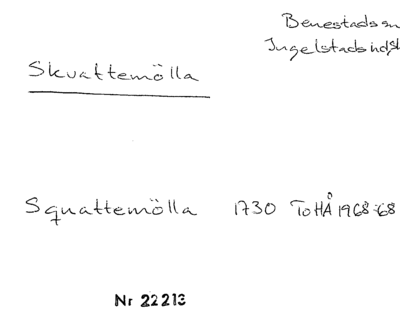 Benestads sn
Ingelstads hd
Skvattemölla
Squattemölla 1730 ToHÅ 1968:68
Nr 22213